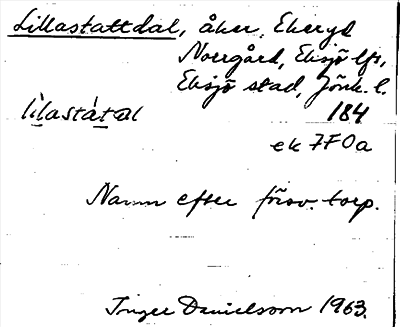 Lillastattdal, åker, Ekeryd
Norrgård, Eksjö lfs,
Eksjö stad, Jönk. l.
lìlastátal 184
ek 7F0a
Namn efter försv. torp.
Inger Danielsson 1963.